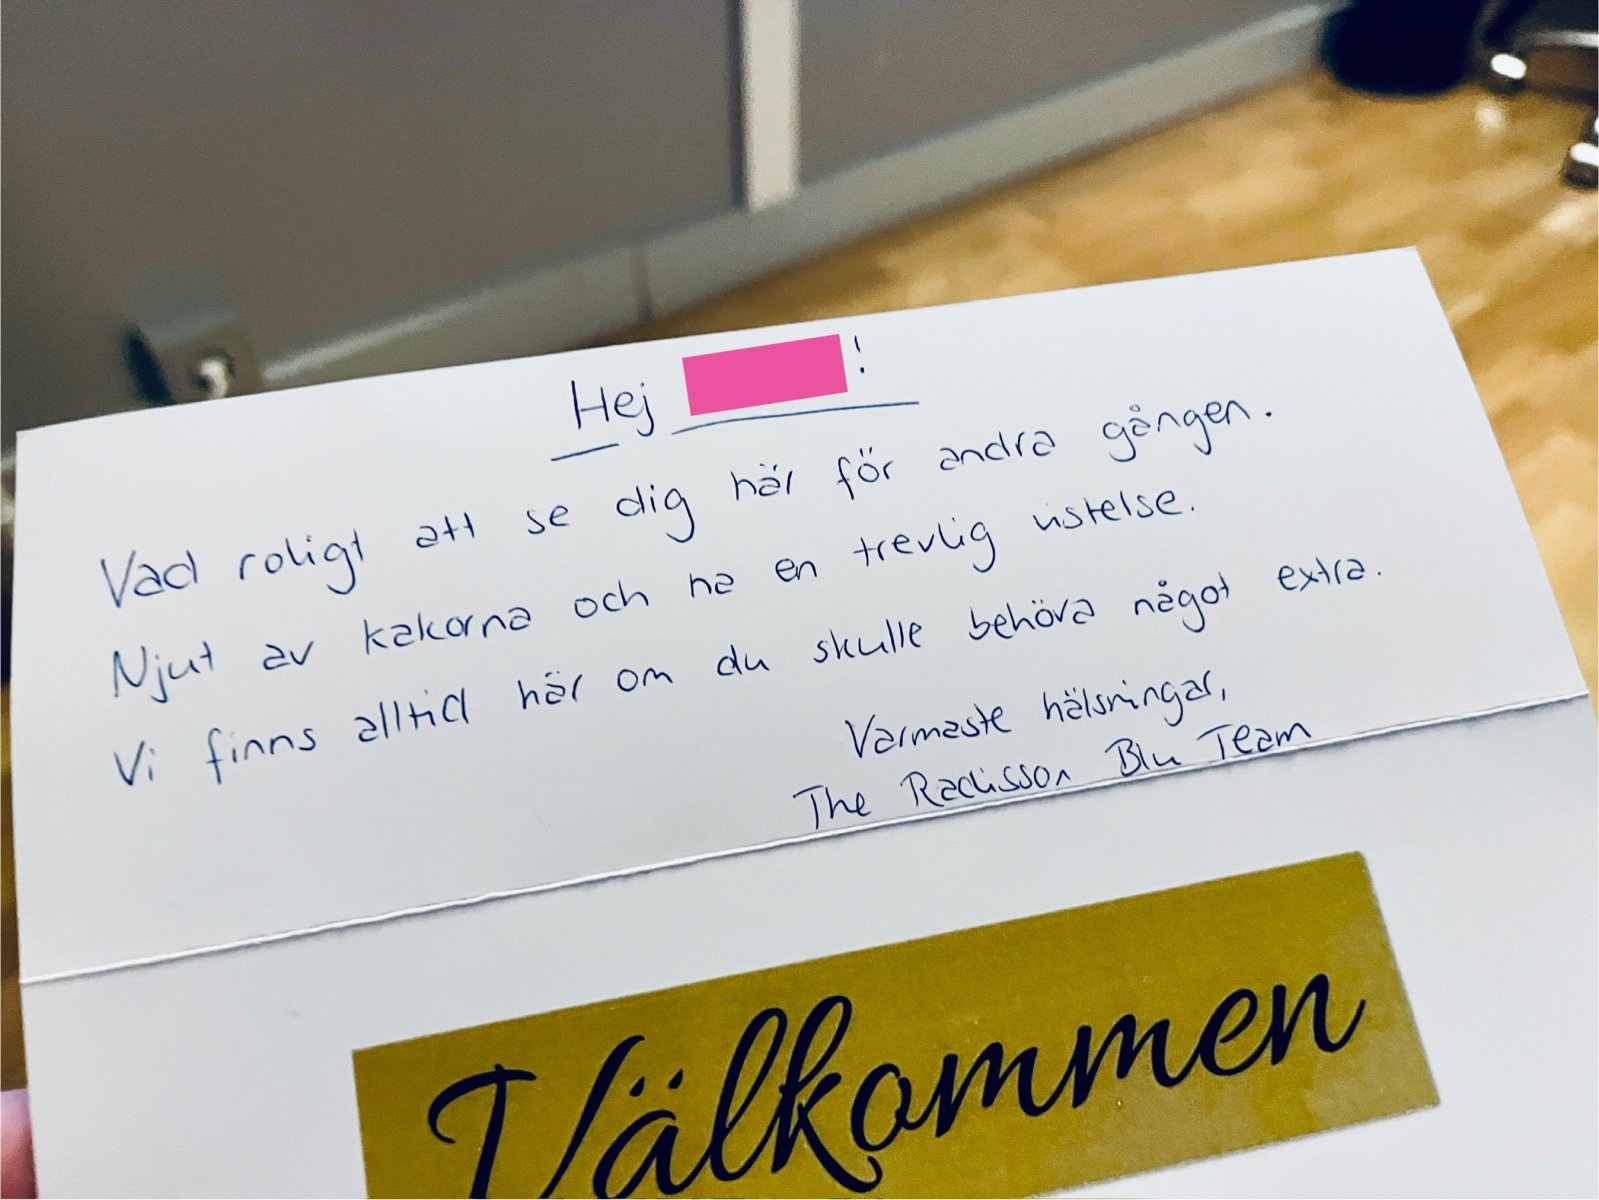 Hej !
Vad roligt att se dig här för andra gången.
Njut av kakorna och ha en trevlig vistelse.
Vi finns alltid här om du skulle behöva något extra.
Varmaste hälsningar,
The Radisson Blu Team
Välkommen